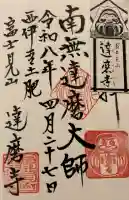 富士見山
達磨寺
南無達磨大師
令和八年四月二十七日
西伊豆土肥
富士見山
達磨寺